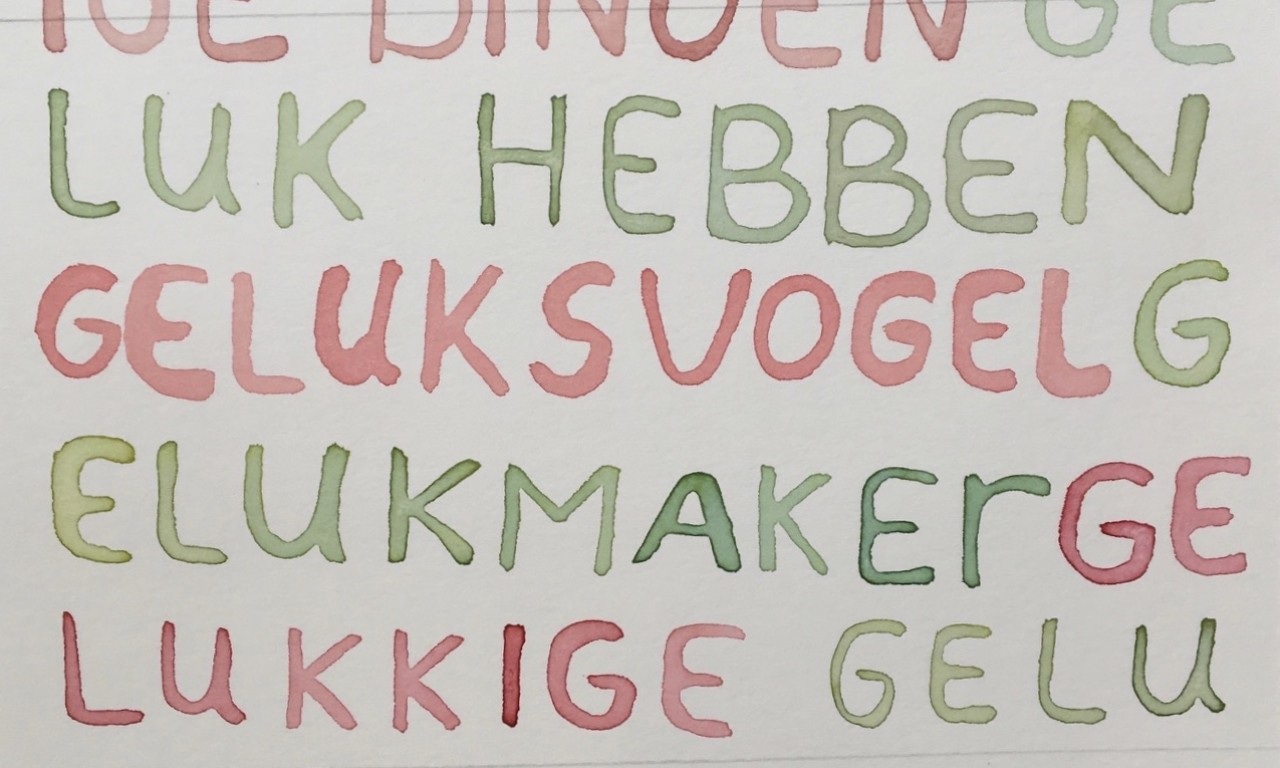 IGE DINGEN GE
LUK HEBBEN
GELUKSVOGEL G
ELUKMAKEr GE
LUKKIGE GELU